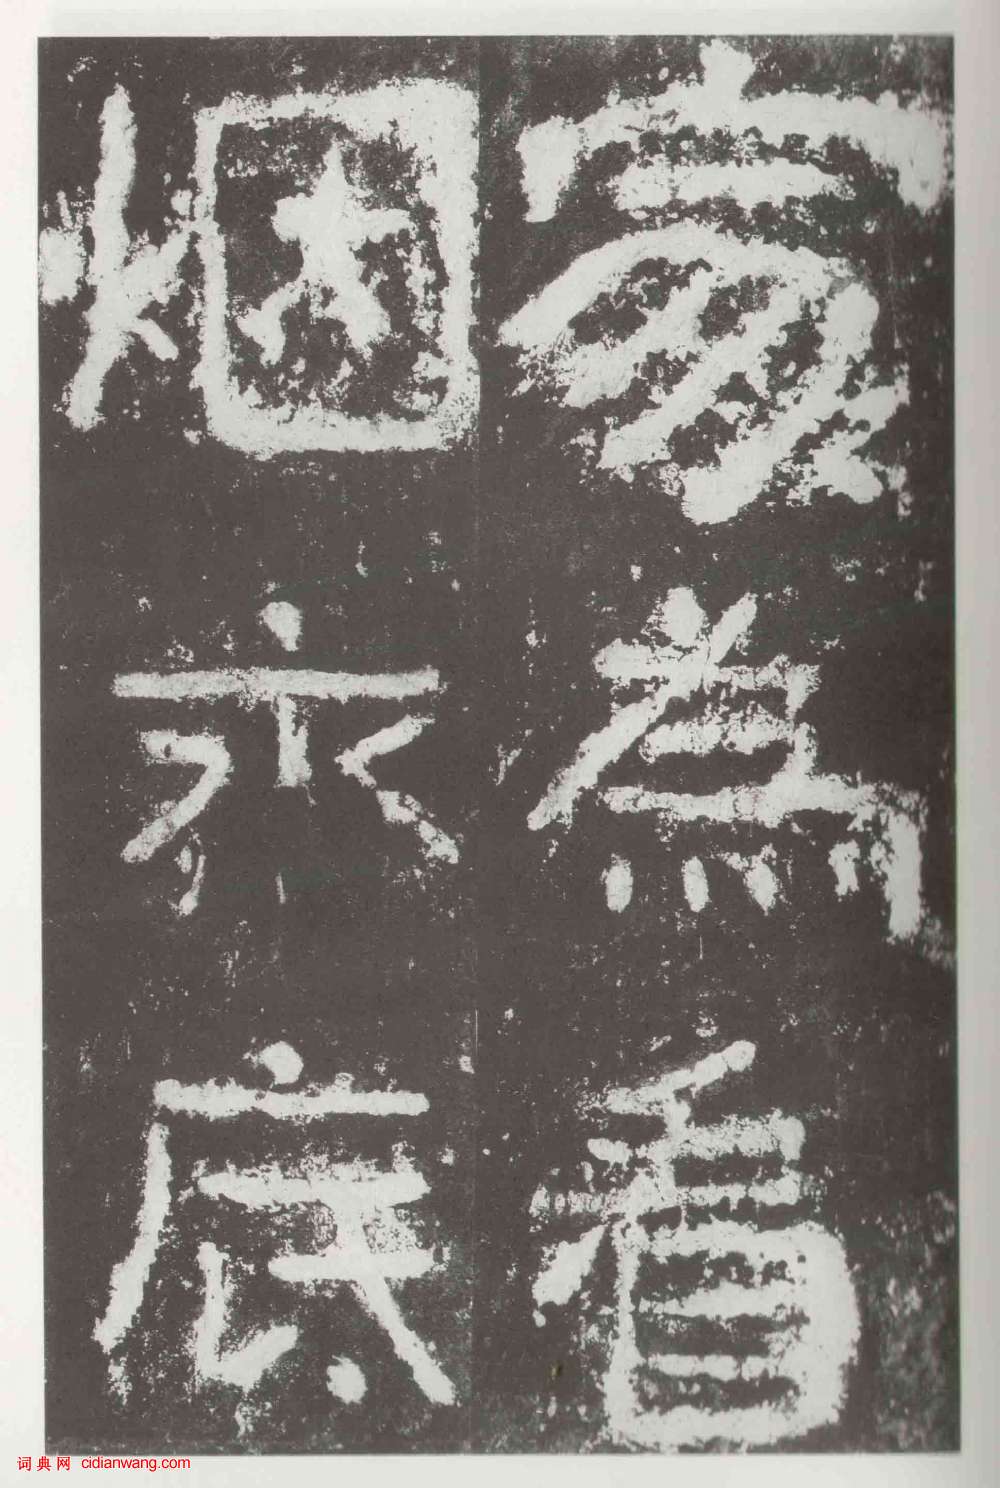 家為看
烟求底
词典网 cidianwang.com